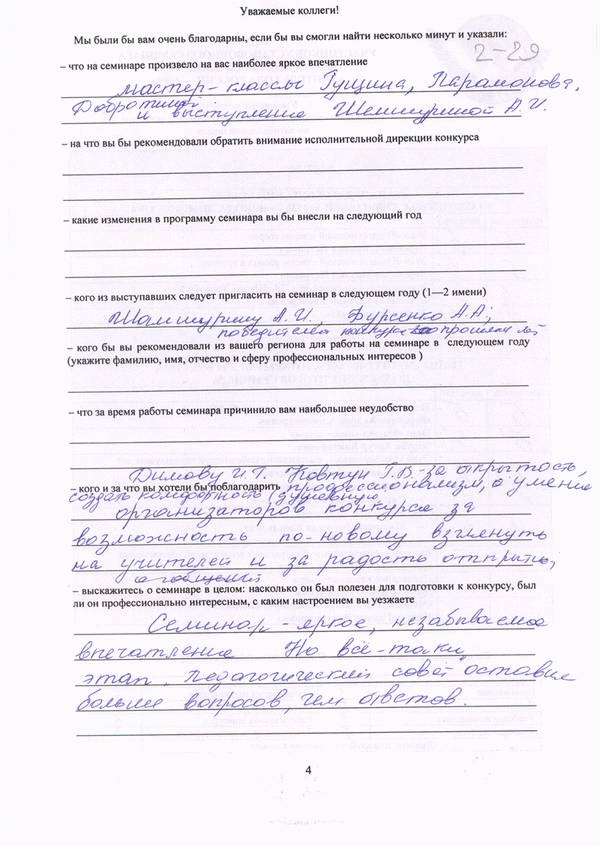 Уважаемые коллеги!
Мы были бы вам очень благодарны, если бы вы смогли найти несколько минут и указали:
2-29
– что на семинаре произвело на вас наиболее яркое впечатление
мастер-классы Гущина, Парамонова,
Добротиной
и выступление Шемшуриной А.И.
– на что вы бы рекомендовали обратить внимание исполнительной дирекции конкурса
– какие изменения в программу семинара вы бы внесли на следующий год
– кого из выступавших следует пригласить на семинар в следующем году (1—2 имени)
Шамшурину А.И., Фурсенко А.А.,
победителей конкурсов прошлых лет
– кого бы вы рекомендовали из вашего региона для работы на семинаре в следующем году
(укажите фамилию, имя, отчество и сферу профессиональных интересов )
– что за время работы семинара причинило вам наибольшее неудобство
Димову И.Г. Ковтун Г.В. - за открытость,
– кого и за что вы хотели бы поблагодарить профессионализм, умение
создать комфортность (душевную
организаторов конкурса за
возможность по-новому взглянуть
на учителей и за радость открытий,
– выскажитесь о семинаре в целом: насколько он был полезен для подготовки к конкурсу, был
ли он профессионально интересным, с каким настроением вы уезжаете
Семинар - яркое, незабываемое
впечатление Но всё-таки
этап "Педагогический совет" оставил
больше вопросов, чем ответов.
4